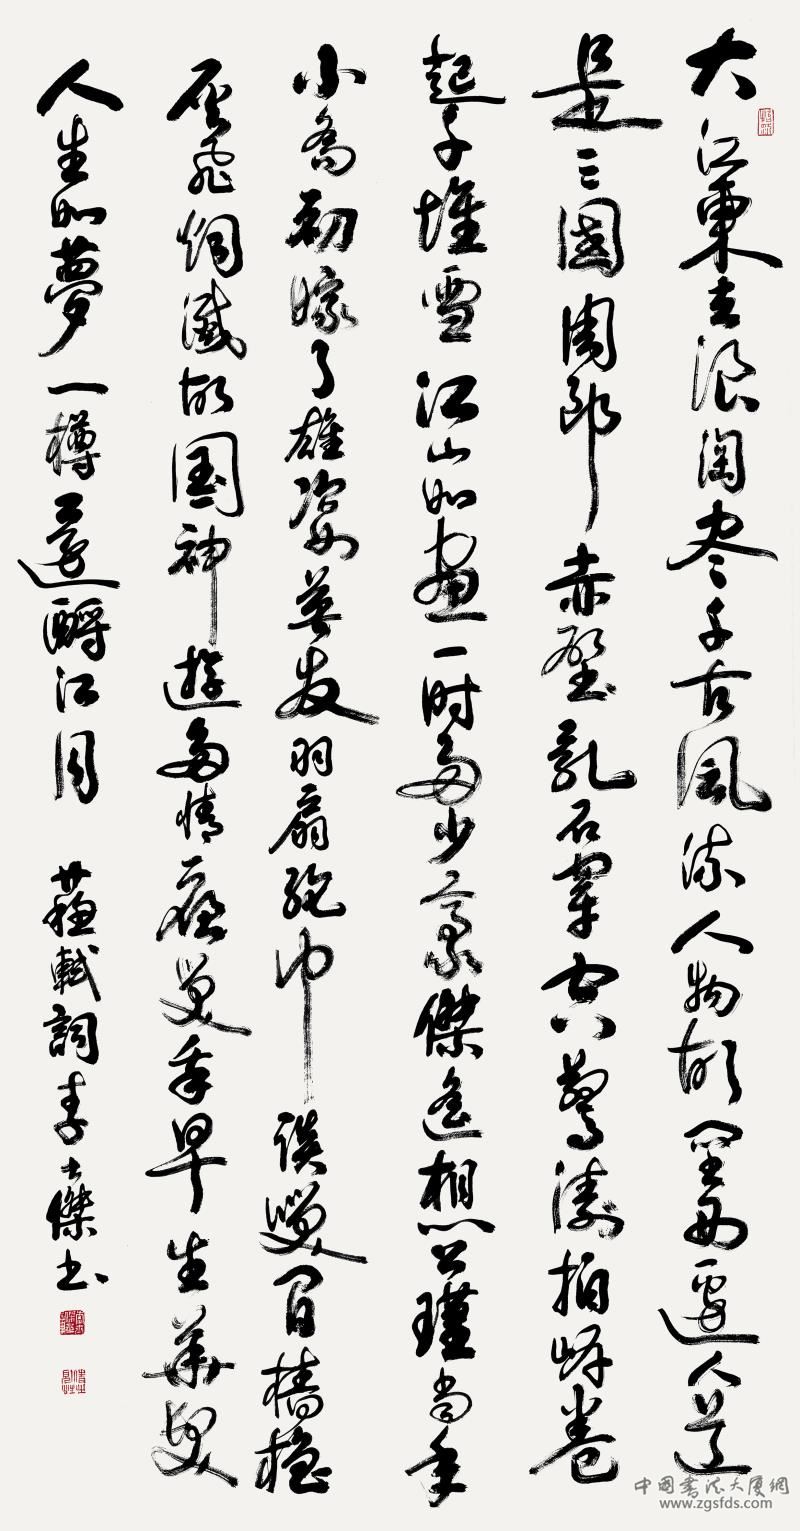 大江東去浪淘尽千古風流人物故壘西邊人道
是三國周郎赤壁乱石穿空驚濤拍岸卷
起千堆雪江山如画一时多少豪傑遙想公瑾当年
小喬初嫁了雄姿英发羽扇綸巾談笑间檣櫓
灰飛烟滅故国神遊多情應笑我早生華髮
人生如夢一樽還酹江月 蘇軾詞李士傑书
中國書法大廈網
www.zgsfds.com